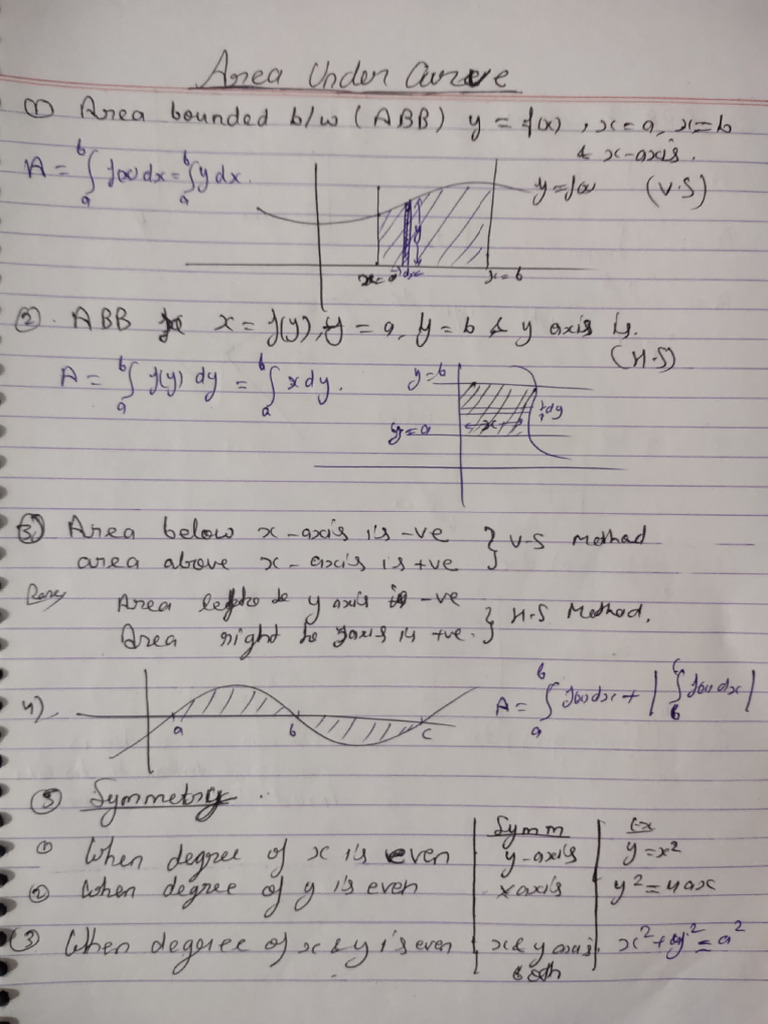 Area Under Curve
① Area bounded b/w (ABB) y = f(x), x=a, x=b
& x-axis.
A = ∫ₐᵇ f(x) dx = ∫ₐᵇ y dx.
y = f(x) (V.S)
y
x=a dx x=b
② ABB x = f(y), y = a, y = b & y axis is.
(H.S)
A = ∫ₐᵇ f(y) dy = ∫ₐᵇ x dy.
y=b
dy
y=a x
③ Area below x-axis is -ve } V-S Method
area above x-axis is +ve
Area left to y axis is -ve } H-S Method.
Area right to y axis is +ve.
4) A = ∫ₐᵇ f(x) dx + | ∫ᵇᶜ f(x) dx |
a b c
⑤ Symmetry
Symm Ex
① When degree of x is even y-axis y = x²
② When degree of y is even x axis y² = 4ax
③ When degree of x & y is even x & y axis x² + y² = a²
both